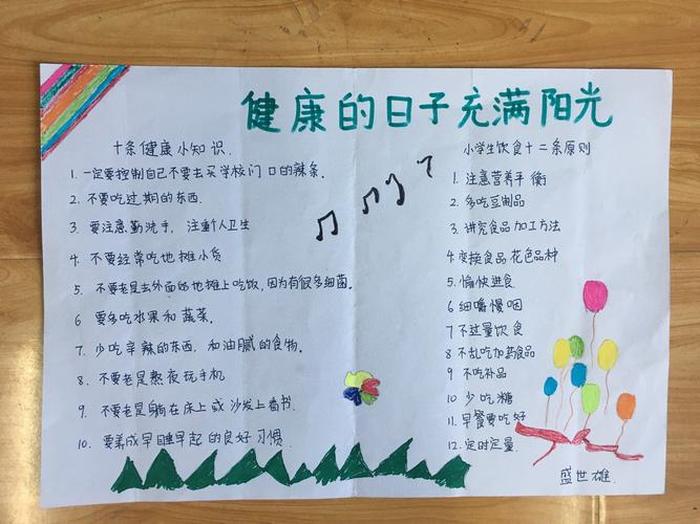 健康的日子充满阳光
十条健康小知识.
1. 一定要控制自己不要去买学校门口的辣条.
2. 不要吃过期的东西.
3. 要注意勤洗手, 注重个人卫生
4. 不要经常吃地摊小货
5. 不要老是去外面的地摊上吃饭,因为有很多细菌.
6 要多吃水果和蔬菜.
7. 少吃辛辣的东西, 和油腻的食物.
8. 不要老是熬夜玩手机
9. 不要老是躺在床上或沙发上看书.
10. 要养成早睡早起的良好习惯.
小学生饮食十二条原则
1. 注意营养平衡
2. 多吃豆制品
3. 讲究食品加工方法
4. 变换食品花色品种
5. 愉快进食
6 细嚼慢咽
7 不过量饮食
8 不乱吃加药食品
9 不吃补品
10 少吃糖
11. 早餐要吃好
12. 定时定量.
盛世雄